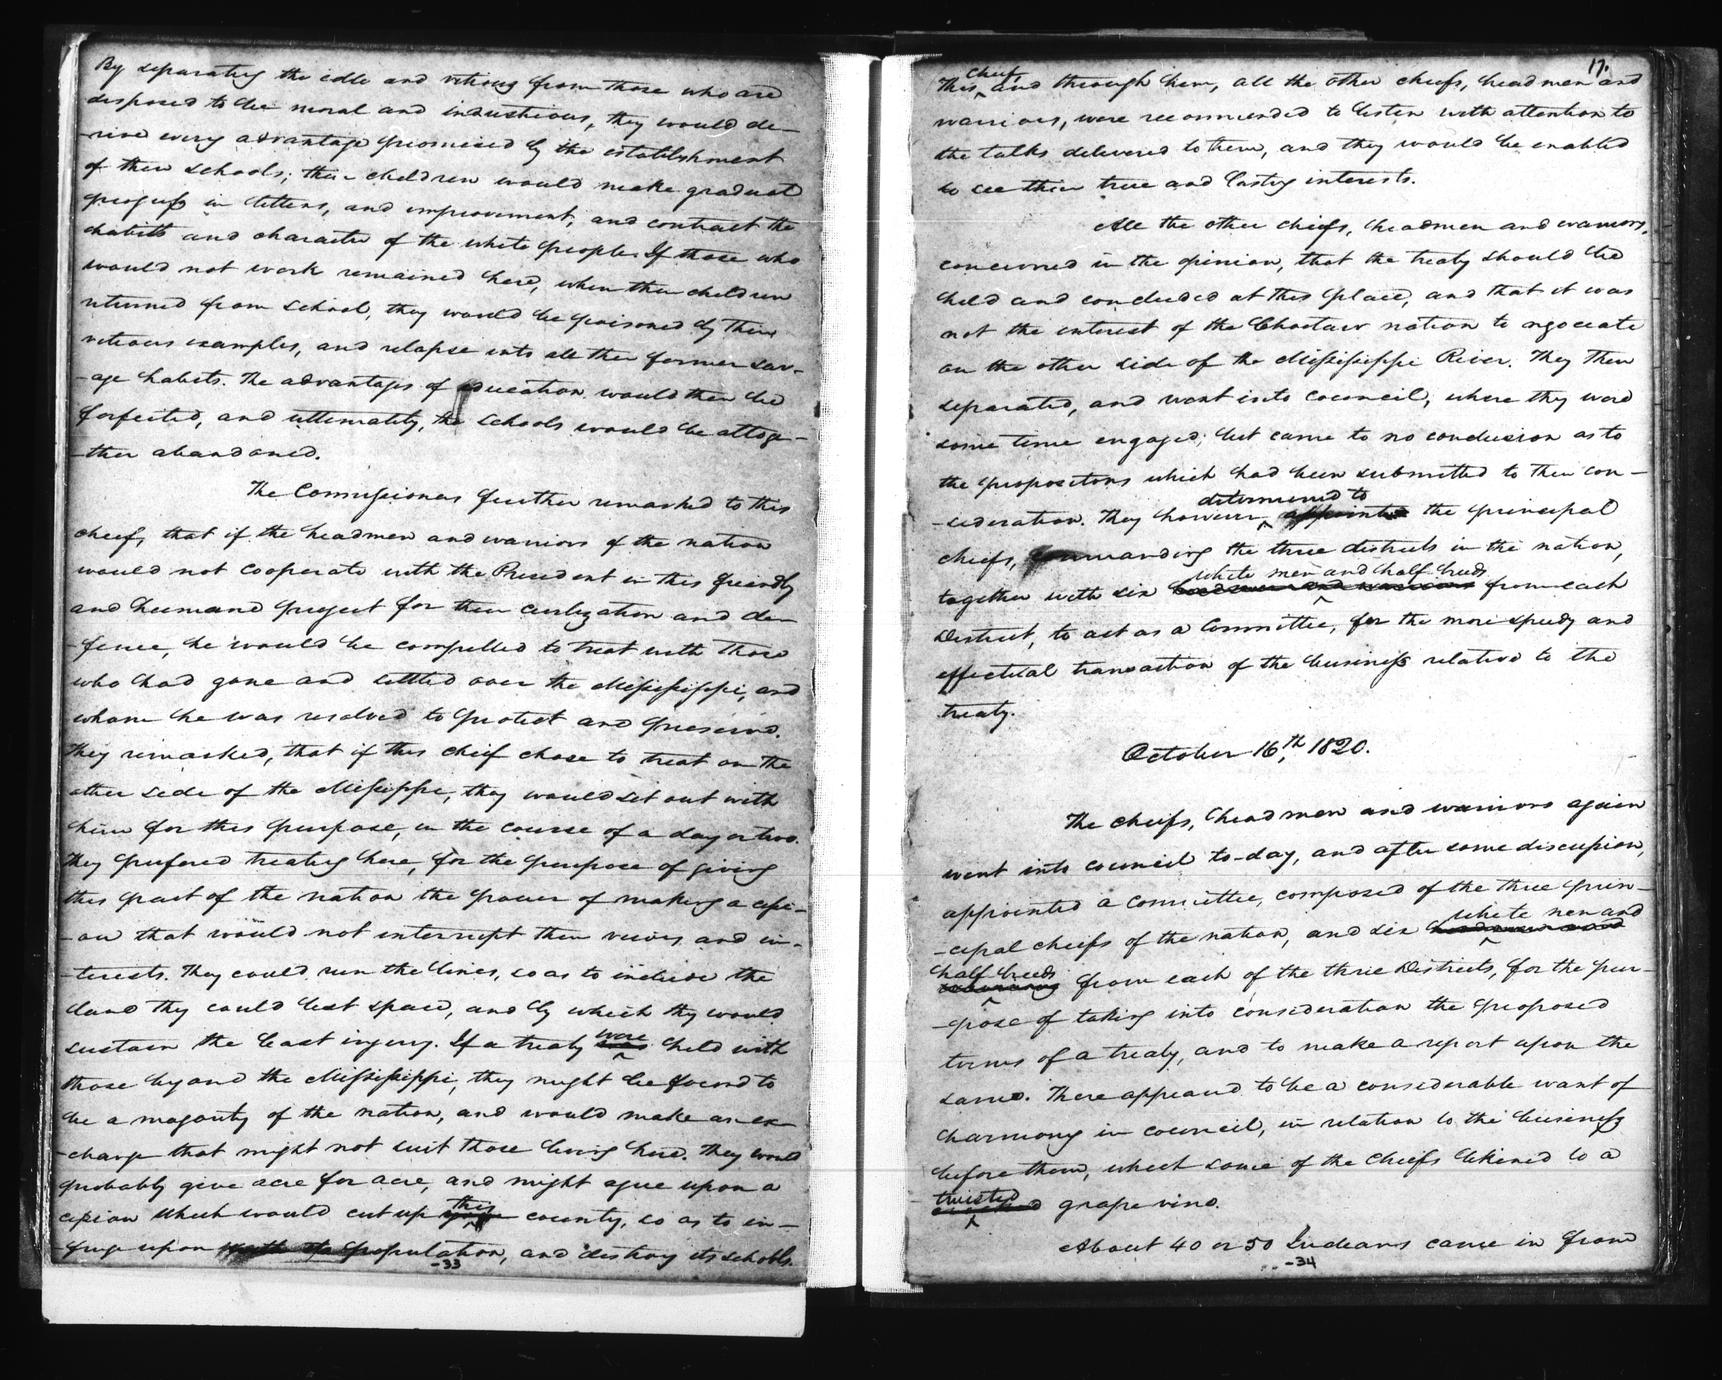 By separating the idle and vitious from those who are
disposed to be moral and industrious, they would de-
-rive every advantage promised by the establishment
of their schools; their children would make gradual
progress in letters, and improvement, and contract the
habits and character of the white people. If those who
would not work remained here, when their children
returned from school, they would be poisoned by their
vitious examples, and relapse into all their former sav-
-age habits. The advantages of education would then be
forfeited, and ultimately, the schools would be altoge-
-ther abandoned.
The Commissioners further remarked to this
chief, that if the headmen and warriors of the nation
would not cooperate with the President in this friendly
and humane project for their civilization and de-
-fence, he would be compelled to treat with those
who had gone and settled over the Mississippi, and
whom he was resolved to protect and preserve.
They remarked, that if this chief chose to treat on the
other side of the Mississippi, they would set out with
him for this purpose, in the course of a day or two.
They prefered treating here, for the purpose of giving
this part of the nation the power of making a cessi-
-on that would not interrupt their views and in-
-terests. They could run the lines, so as to include the
land they could best spare, and by which they would
sustain the least injury. If a treaty were held with
those beyond the Mississippi, they might be found to
be a majority of the nation, and would make an ex-
-change that might not suit those living here. They would
probably give acre for acre, and might agree upon a
cession which would cut up this country, so as to in-
fringe upon population, and destroy its schools.
-33
17.
This chief, and through him, all the other chiefs, headmen and
warriors, were recommended to listen with attention to
the talks delivered to them, and they would be enabled
to see their true and lasting interests.
All the other chiefs, headmen and warriors,
concurred in the opinion, that the treaty should be
held and concluded at this place, and that it was
not the interest of the Choctaw nation to negociate
on the other side of the Mississippi River. They then
separated, and went into council, where they were
some time engaged; but came to no conclusion as to
the propositions which had been submitted to their con-
-sideration. They however determined to appoint the principal
chiefs, commanding the three districts in the nation,
together with six white men and half breeds from each
District, to act as a Committee, for the more speedy and
effectual transaction of the business relative to the
treaty.
October 16th, 1820.
The chiefs, headmen and warriors again
went into council to-day, and after some discussion,
appointed a committee, composed of the three prin-
-cipal chiefs of the nation, and six white men and
half breeds from each of the three Districts, for the pur-
-pose of taking into consideration the proposed
terms of a treaty, and to make a report upon the
same. There appeared to be a considerable want of
harmony in council, in relation to the business
before them, which some of the chiefs likened to a
twisted grape vine.
About 40 or 50 Indians came in from
-34